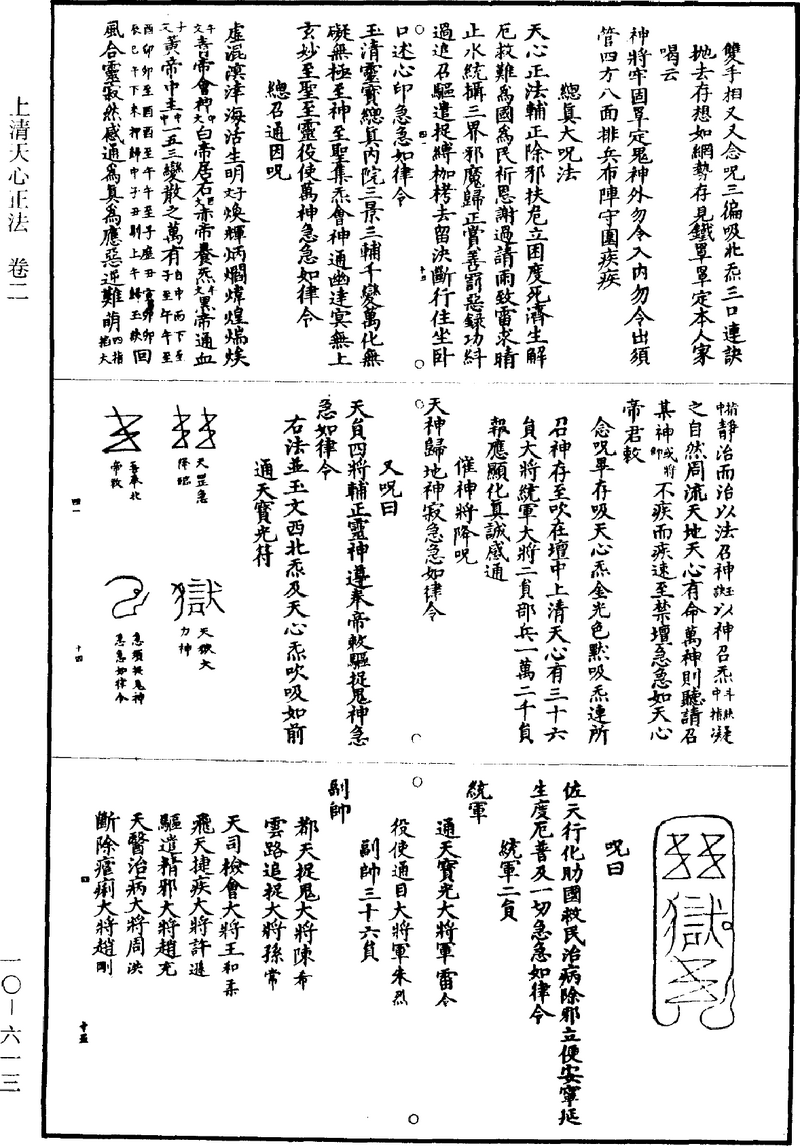 上清天心正法　卷二
一〇—六一三
雙手相叉又念呪三徧吸北炁三口連訣
拋去存想如網勢存見鐵罩罩定本人家
喝云
神將牢固罩定鬼神外勿令入內勿令出須
管四方八面排兵布陣守圍疾疾
總真大呪法
天心正法輔正除邪扶危立困度死濟生解
厄救難為國為民祈恩謝過請雨致雷求晴
止水統攝三界邪魔歸正賞善罰惡錄功糾
過追召驅遣捉縛枷栲去留決斷行住坐臥
口述心印急急如律令
玉清靈寶總真內院三景三輔千變萬化無
礙無極至神至聖集炁會神通幽達冥無上
玄妙至聖至靈役使萬神急急如律令
總召通因呪
虛混溟涬海沽生明文子煥輝炳爓煒煌煓煐
文午喜帝會神文卯白帝居右文酉赤帝養炁文午黑帝通血
文子黃帝中主中一五三變散之萬有子至午午至
酉卯卯至酉酉至午午至子度丑寅卯卯
辰巳午下未押歸中子丑剔上午歸玉訣回
風合靈寂然感通為真為應惡逆難萌四指掐大
中指靜治而治以法召神玉訣以神召炁斗訣中指凝
之自然周流天地天心有命萬神則聽請召
某神或將即不疾而疾速至禁壇急急如天心
帝君敕
念呪畢存吸天心炁金光色默吸炁連所
召神存至吹在壇中上清天心有三十六
員大將統軍大將二員部兵一萬二千員
報應顯化真誠感通
催神將降呪
天神歸地神寂急急如律令
又呪曰
天員四將輔正靈神遵奉帝敕驅捉鬼神急
急如律令
右法並玉文西北炁及天心炁吹吸如前
通天寶光符
天罡急
降臨
吾奉北
帝敕
天獄大
力神
急須捉鬼神
急急如律令
四一
十四
呪曰
佐天行化助國救民治病除邪立便安寧延
生度厄普及一切急急如律令
統軍二員
統軍
通天寶光大將軍雷令
役使通目大將軍朱烈
副帥三十六員
副帥
都天捉鬼大將陳希
雲路追捉大將孫常
天司檢會大將王和柔
飛天捷疾大將許遜
驅遣精邪大將趙充
天醫治病大將周洪
斷除瘧痢大將趙剛
十五